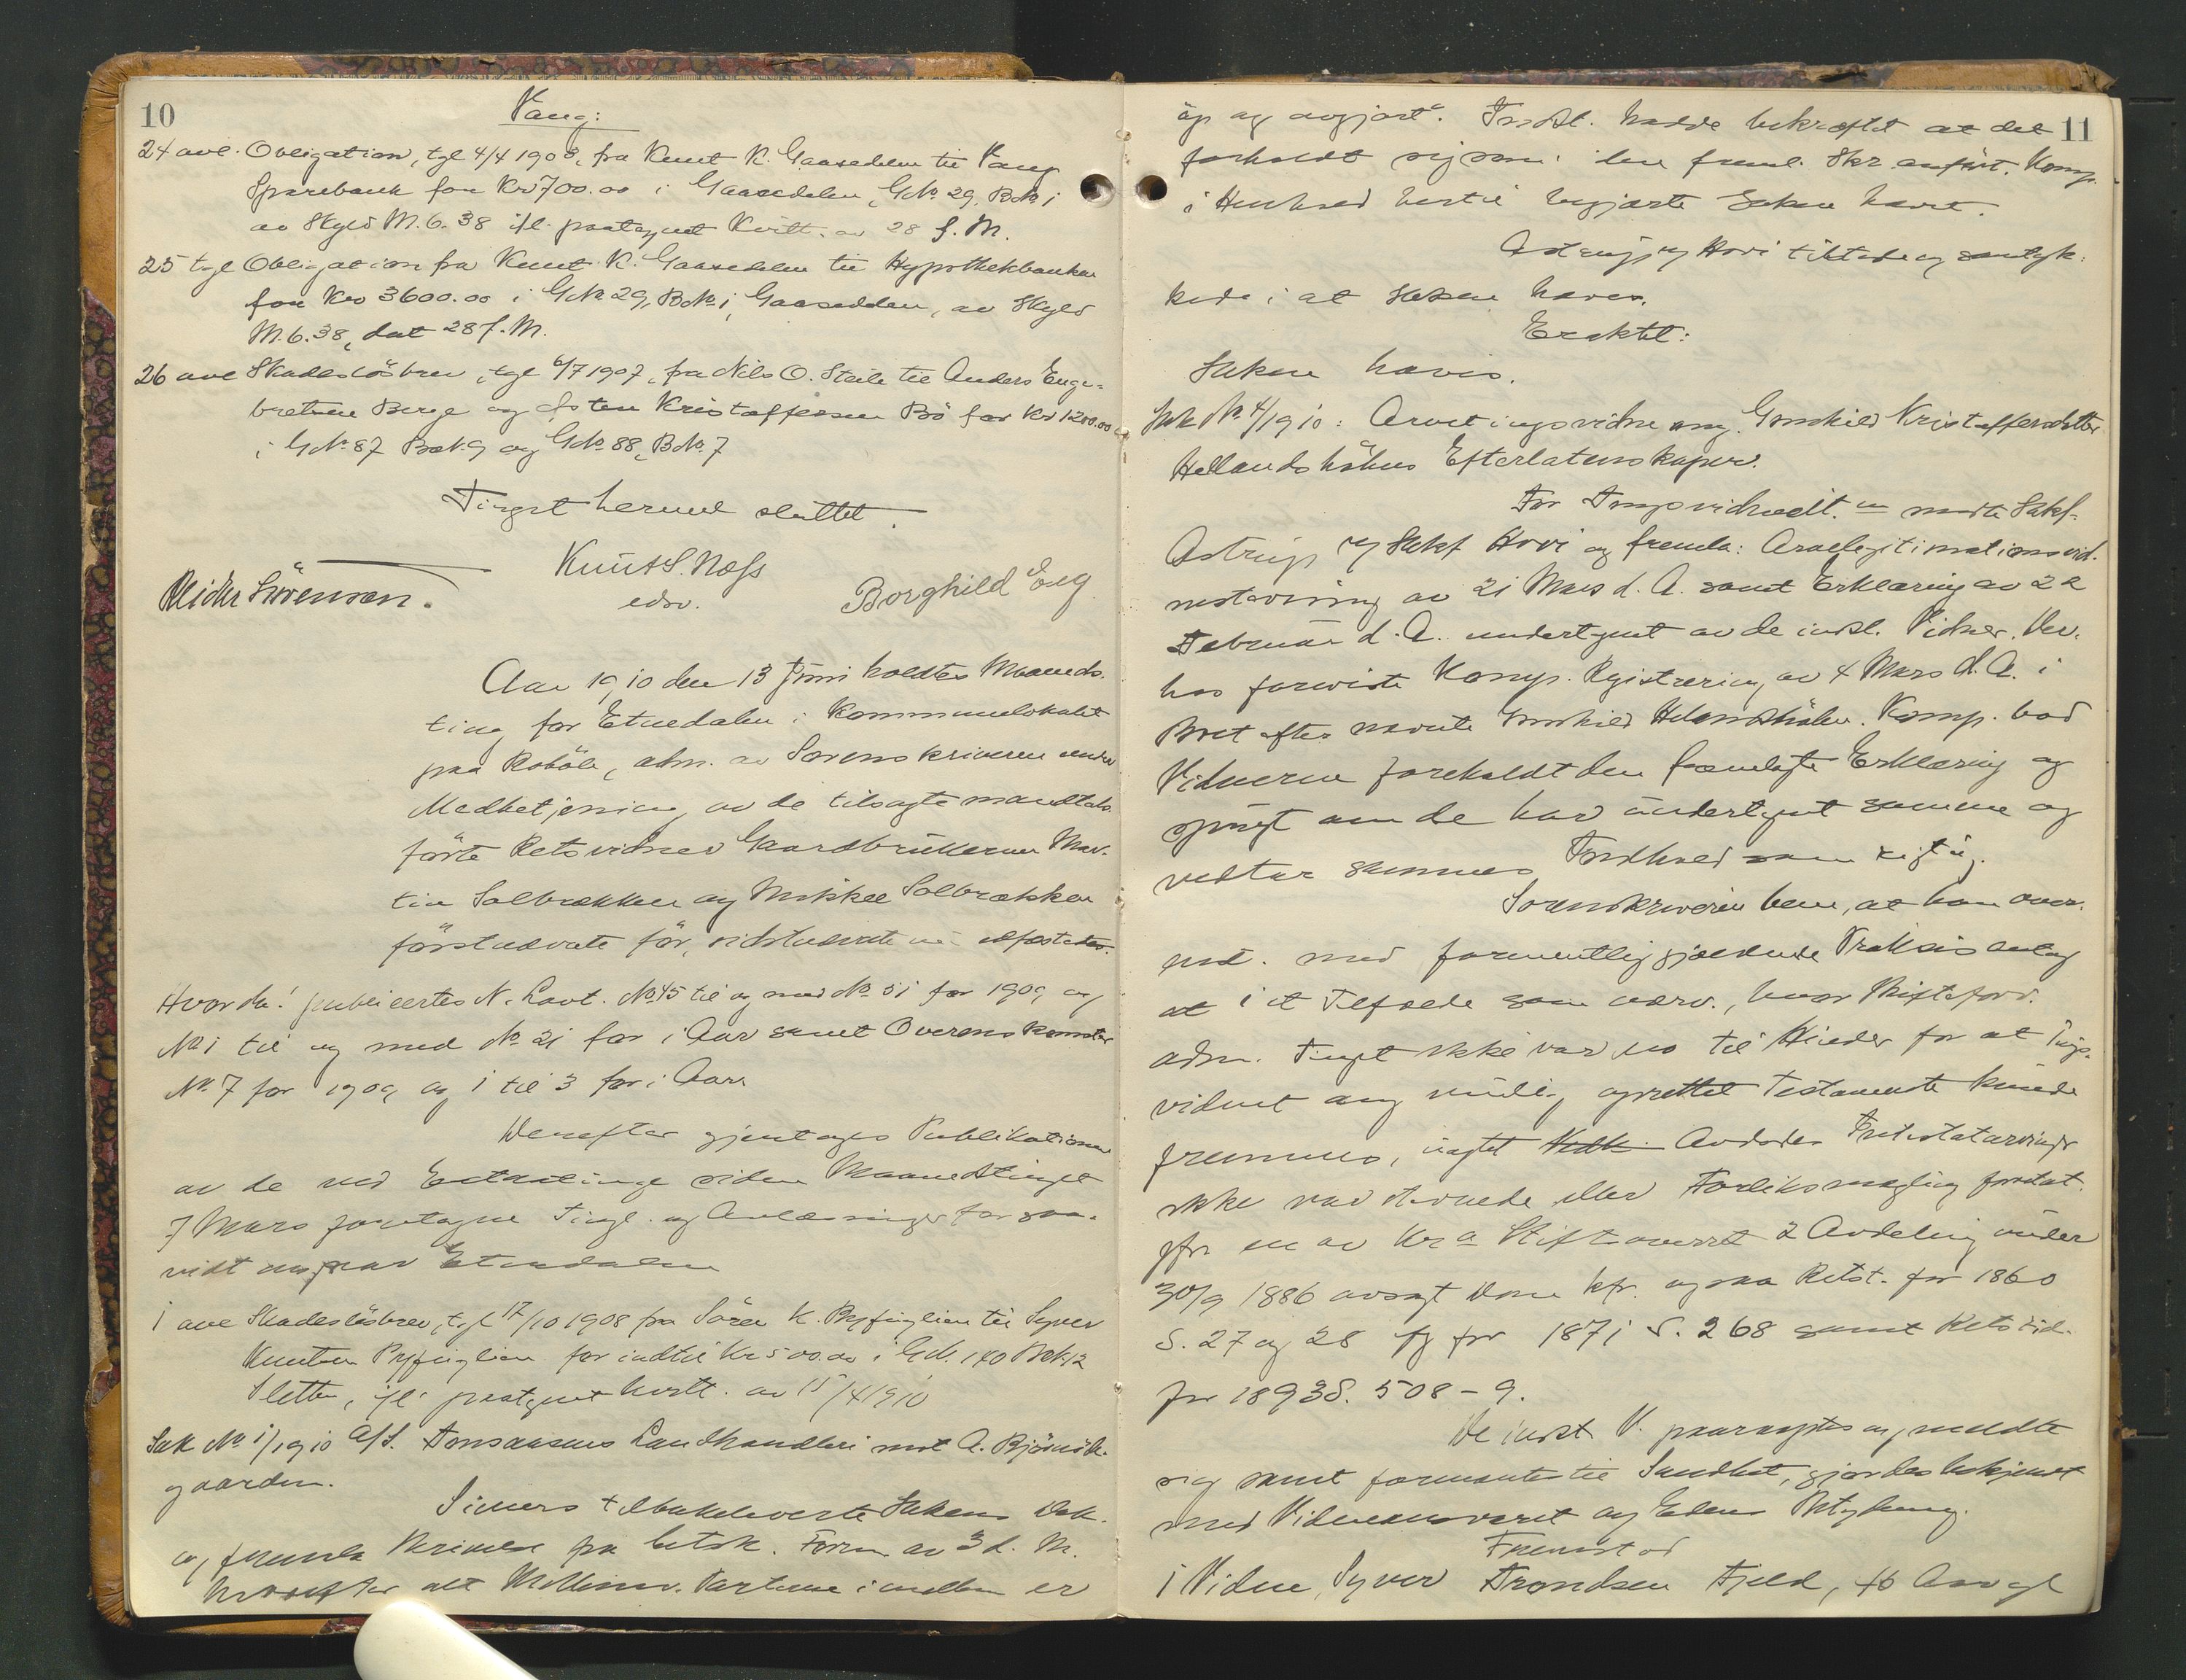 10
Vang:
24 avl. Obligation, tgl 4/4 1908, fra Knut K. Gaasedelen til Vang
Sparebank for Kr 700.00 i Gaasedelen, G.No. 29, B.No. 1
av Skyld M. 6.38 ifl. paategnet Kvitt. av 28 f. M.
25 tgl Obligation fra Knut K. Gaasedelen til Hypothekbanken
for Kr 3600.00 i G.No 29, B.No. 1, Gaasedelen, av Skyld
M. 6.38, dat 28 f. M.
26 avl Skadesløsbrev, tgl 6/7 1907, fra Nils O. Steile til Anders Enge-
bretsen Berge og Østen Kristoffersen Bö for Kr 1200.00
i G.No. 87 B.No. 9 og G.No. 88, B.No. 7
Tinget hermed sluttet.
Sörensen.
Knut S. Næss
edsv.
Borghild Eng
Aar 1910 den 13 Juni holdtes Maaneds-
ting for Etnedalen i Kommunelokalet
paa Robøle, adm. av Sorenskriveren under
Medbetjening av de tilsagte mandtals-
førte Retsvidner Gaardbrukerne Mar-
tin Solbrækken og Mikkel Solbrækken
förstnævnte för, sidstnævnte nu edfæstedes.
Hvorda: publicertes N. Lovt. No. 45 til og med No. 51 for 1909 og
No 1 til og med No. 21 for i Aar samt Overenskomster
No. 7 for 1909 og 1 til 3 for i Aar.
Derefter gjentages Publikationen
av de ved Extrating siden Maanedstinget
7 Mars foretagne Tingl. og Avlæsninger for saa-
vidt Etnedalen
1 avl Skadesløsbrev, tgl 17/10 1908 fra Sören K. til Syver
Knutsen for indtil Kr 500.00 i G.No. 140 B.No. 12
Sletten, ifl. paategnet kvitt. av 15/4 1910
Sak No. 1/1910 A/S. Tonsaasens Landhandleri mot A.
gaarden.
tilbakeleverte Sakens Dok.
og fremla Skrivelse fra betsk. Form. av 3 d. M.
hvorefter alt Mellemv. Parterne imellem er
11
op og avgjort". Indst. hadde bekræftet at det
forholdt sig som i den freml. Skr. anført. Komp.
i Henhold hertil begjærte Saken hævet.
Astrup og Hovi tiltraadte og samtyk-
kede i at Saken hæves.
Eraktet:
Saken hæves.
Sak No. 4/1910: Arvetingsvidne ang. Gunhild Kristoffersdatter
Hellandshøhns Efterlatenskaper.
For Tingsvidneutst. mødte Sakf.
Astrup og Sakf Hovi og fremla: Arvelegitimationsvid-
nestevning av 21 Mars d. A. samt Erklæring av 22
Februar d. A. undertegnet av de indst. Vidner. Der-
hos foreviste Komp. Registrering av 4 Mars d. A. i
Boet efter nævnte Gunhild Helandshøhn. Komp. bad
Vidnerne foreholdt den fremlagte Erklæring og
spurgt om de har undertegnet samme og
vedtar sammes Indhold som rigtig.
Sorenskriveren bem., at han over-
ens. med formentlig gjældende Praksis antog
at i et Tilfælde som nærv., hvor Skifteforv.
adm. Tinget ikke var no til Hinder for at Tings-
vidnet ang mundtlig oprettet Testamente kunde
fremmes, uagtet Avdødes Intestatarvinger
ikke var stevnede eller Forliksmægling foretat.
jfr en av Kra Stiftsoverret 2 Avdeling under
30/9 1886 avsagt Dom kfr. ogsaa Retst. for 1860
S. 27 og 28 og for 1871 S. 268 samt Retstid.
for 1893 S. 508 - 9.
De indst. V. paaraaptes og meldte
sig samt formantes til Sandhet, gjordes bekjendt
med Vidneansvaret og Edens Betydning.
Fremstod
1 Vidne, Syver Trondsen Fjeld, 46 Aar gl